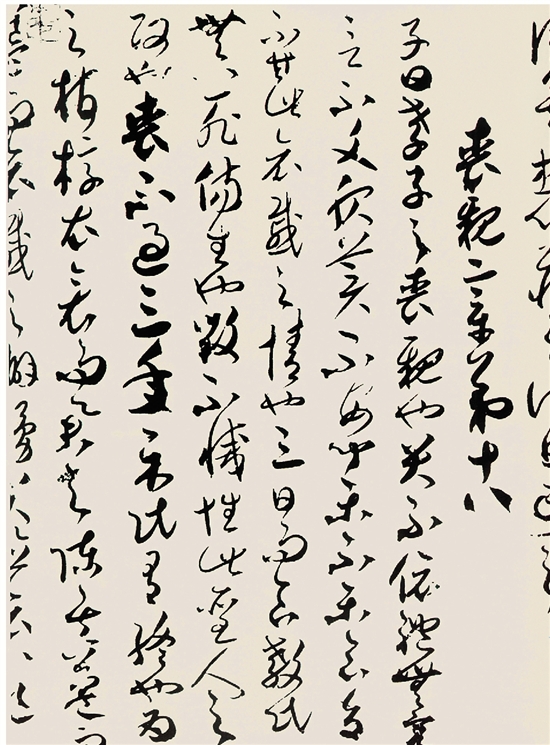 喪親章第十八
子曰孝子之喪親也哭不依禮無容
言不文服美不安聞樂不樂食旨
不甘此哀戚之情也三日而食教民
無以死傷生也毀不滅性此聖人之
政也喪不過三年示民有終也為
之棺椁衣衾而舉之陳其簠簋而
哀戚之